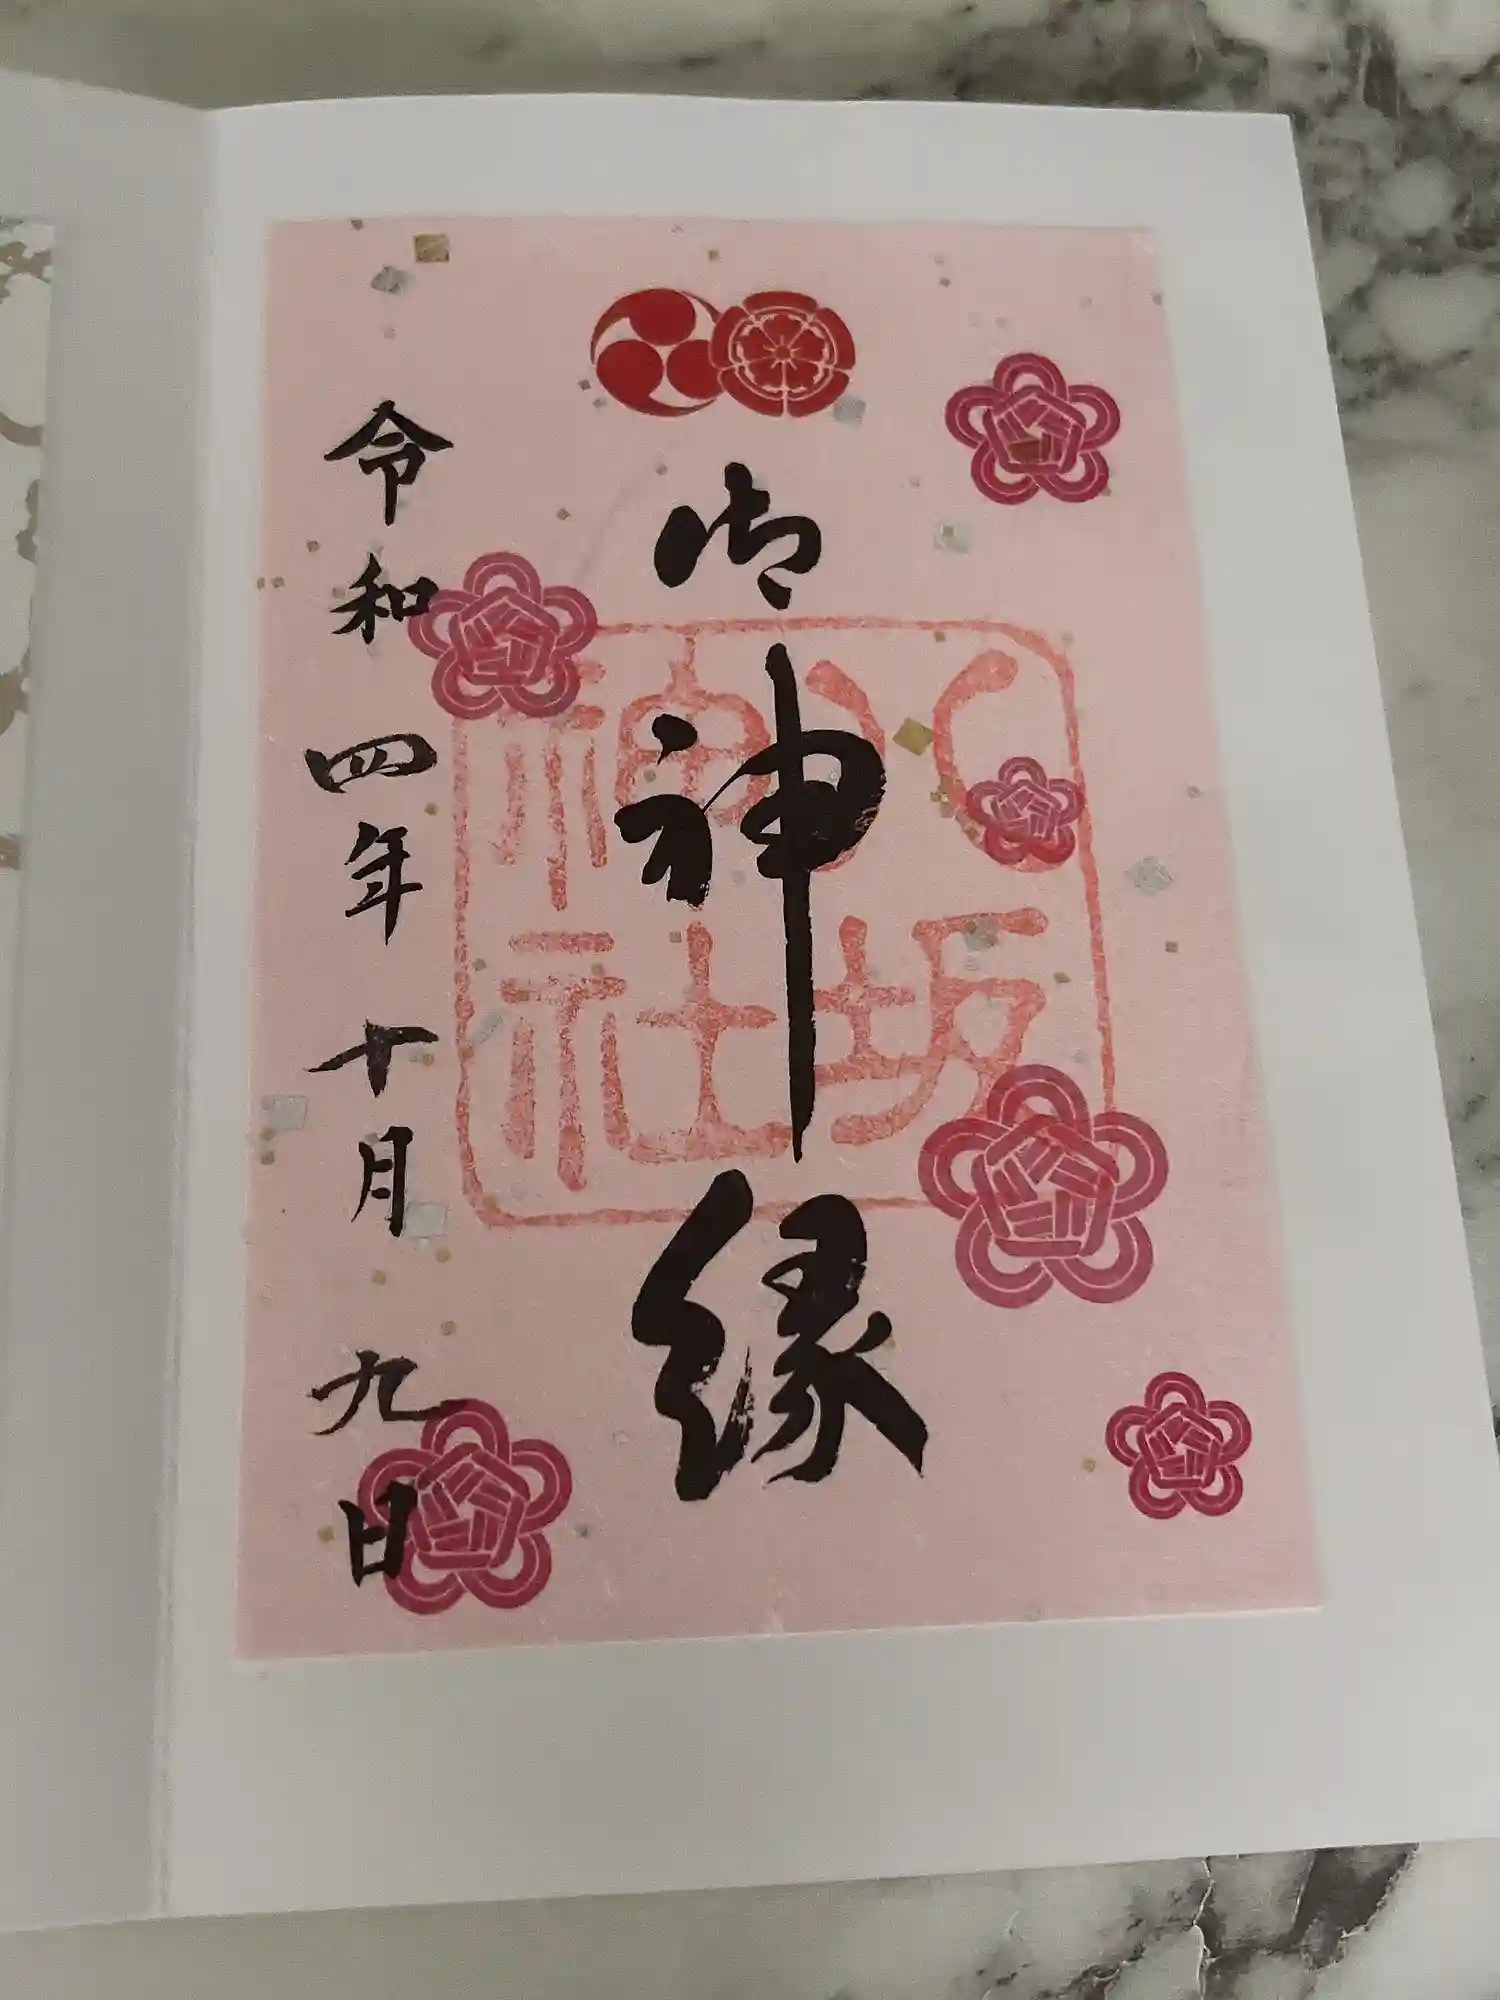 御神縁
八坂
神社
令和四年十月九日